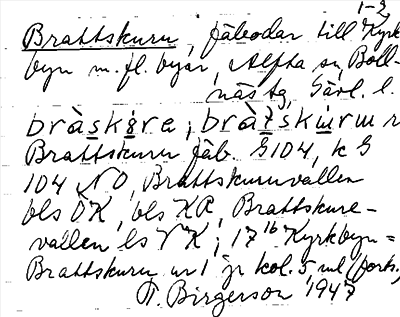 1-2
Brattskuru, fäbodar till Kyrk
byn m. fl. byar, Alfta sn, Boll-
näs tg, Gävl. l.
bràskɵ̀re; bràtskɯrɯ n
Brattskuru fäb. G104, k G
104 NO, Brattskuruvallen
bls ÖK, bls KR, Brattskure-
vallen ls VK; 17¹⁶ Kyrkbyn=
Brattskuru nr 1 jr kol. 5 ml (forts.)
T. Birgerson 1947